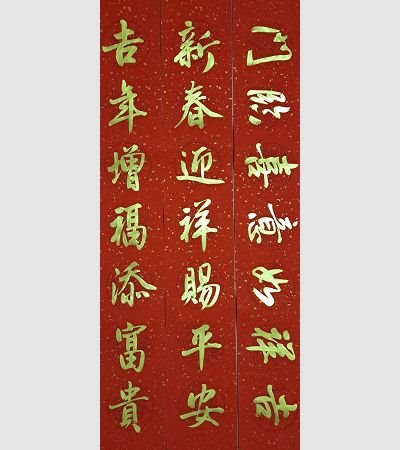 吉祥如意喜臨門
新春迎祥賜平安
吉年增福添富貴